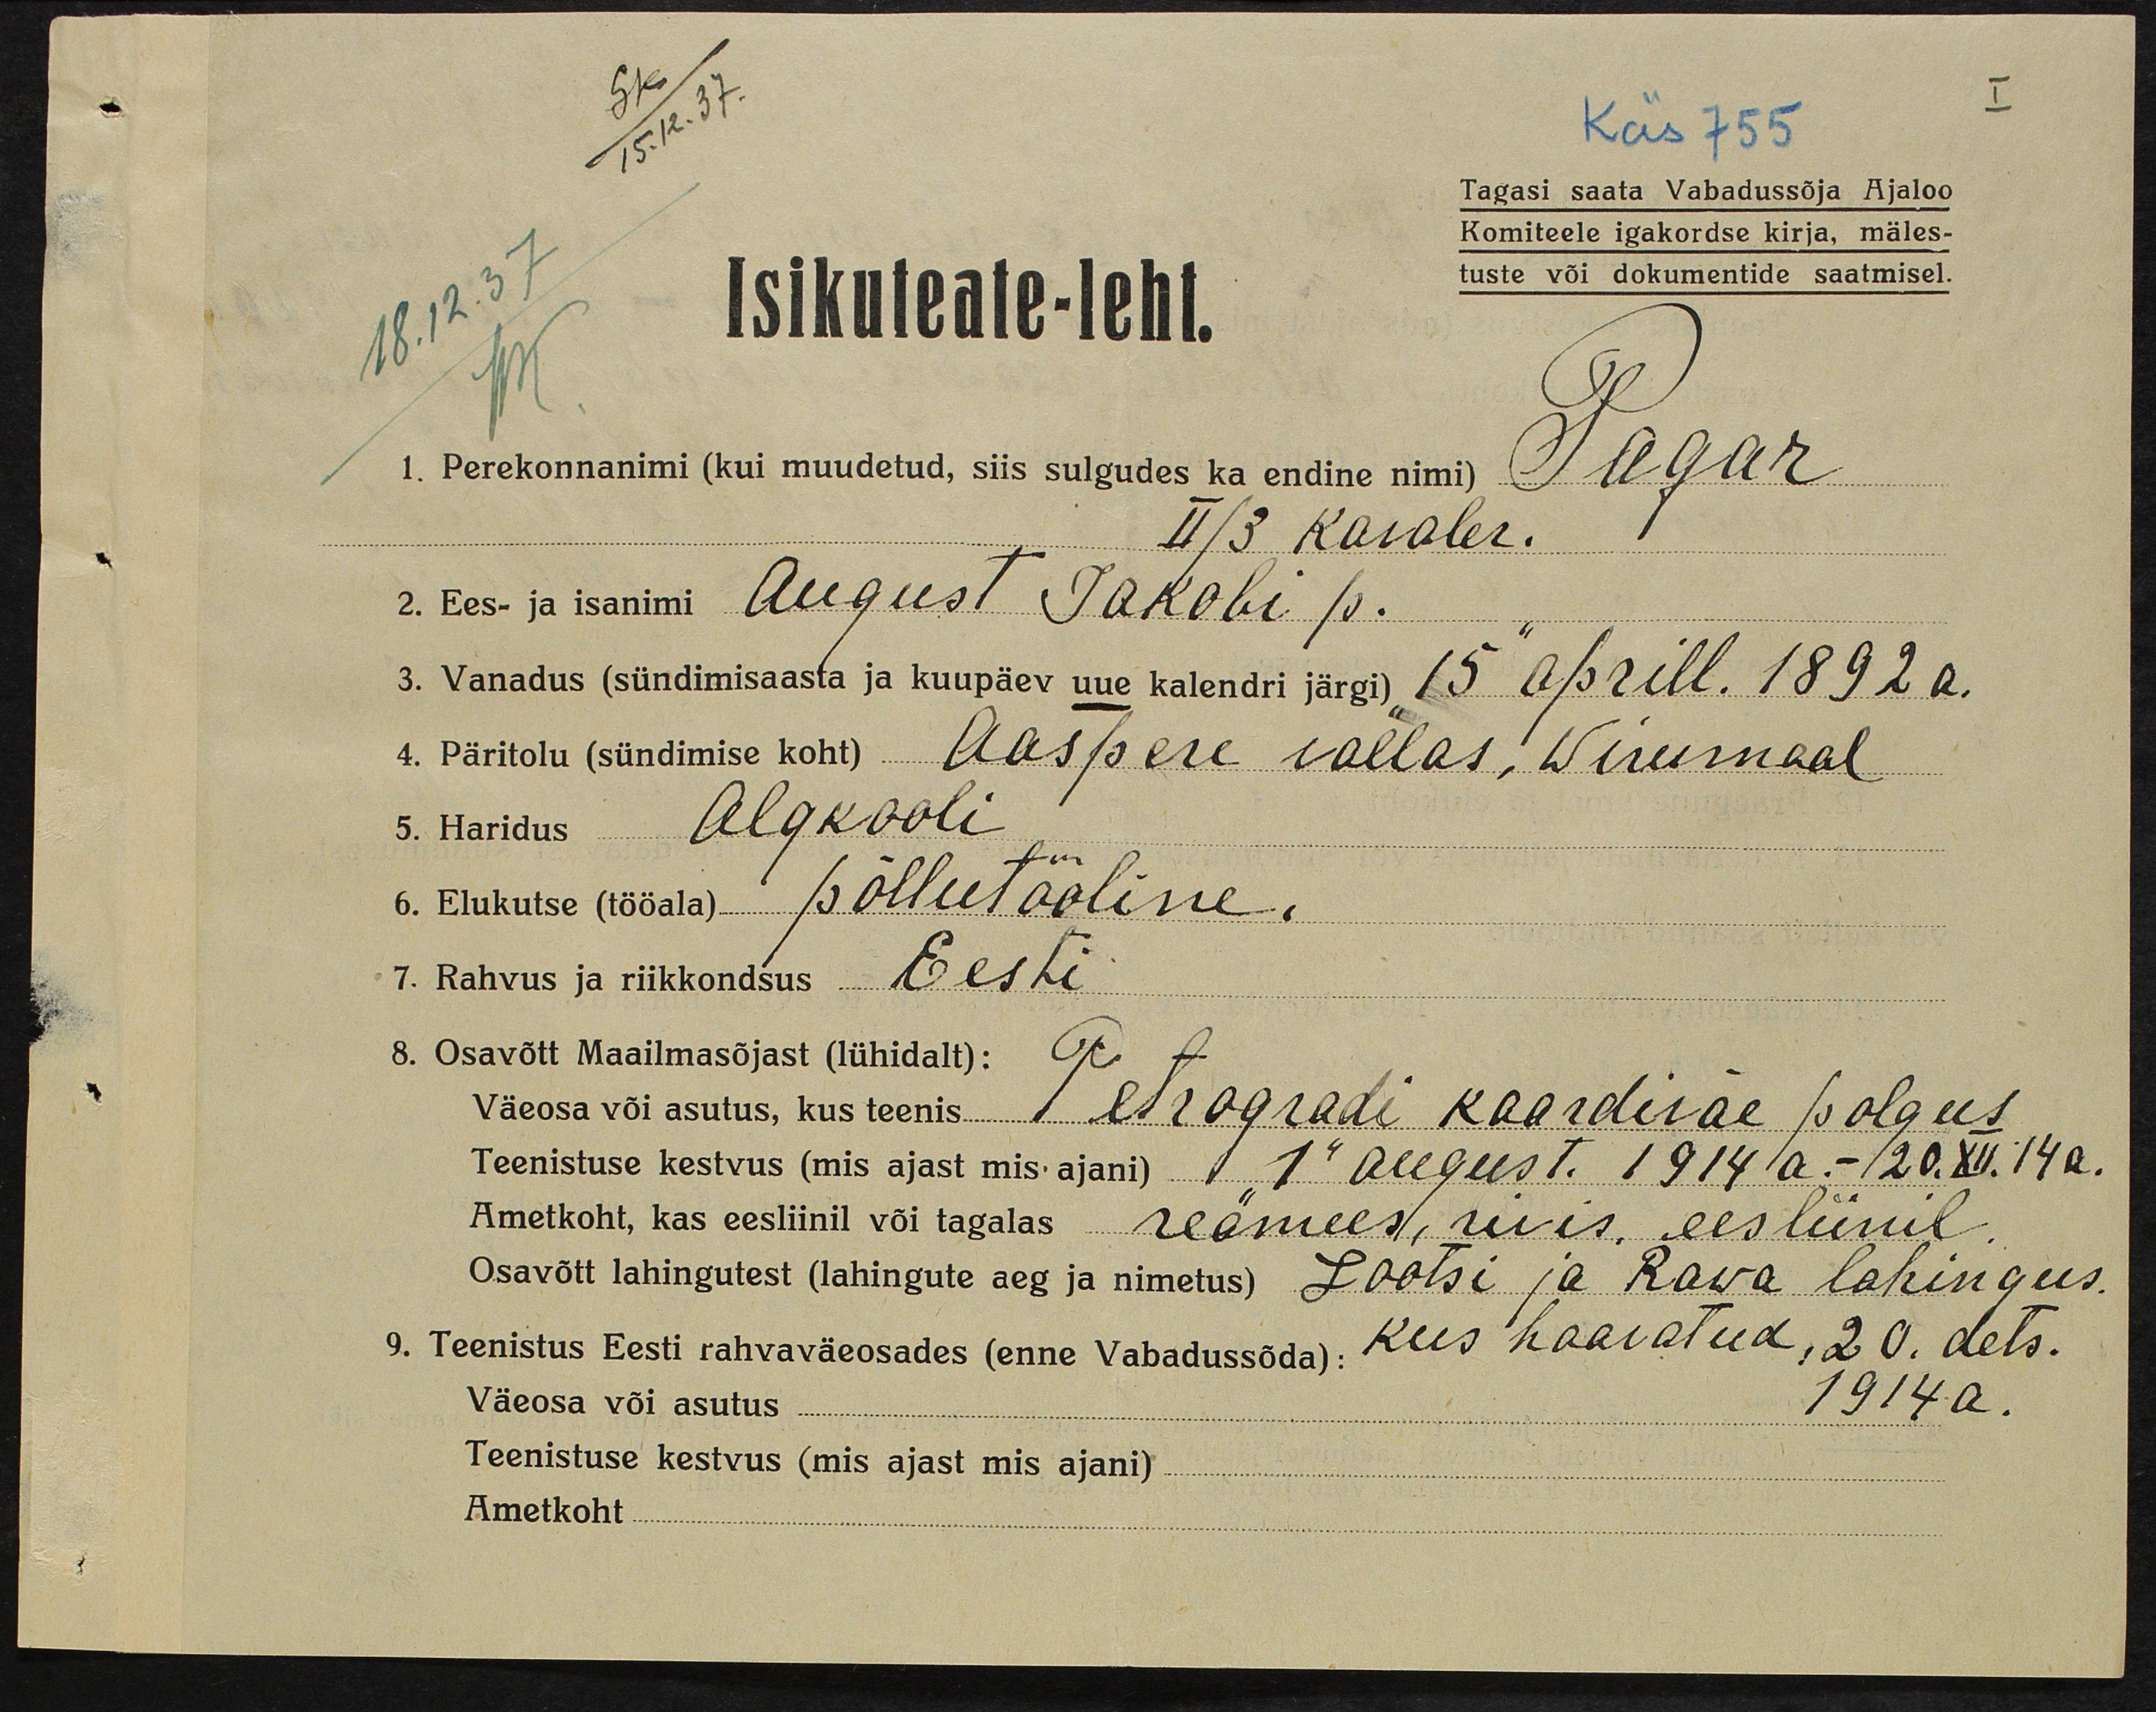 Sk
15.12.37.
Käs 755
I
Tagasi saata Vabadussõja Ajaloo
Komiteele igakordse kirja, mäles-
tuste või dokumentide saatmisel.
18.12.37
Isikuteate-leht.
1. Perekonnanimi (kui muudetud, siis sulgudes ka endine nimi) Pagar
II/3 kavaler.
2. Ees- ja isanimi August Jakobi p.
3. Vanadus (sündimisaasta ja kuupäev uue kalendri järgi) „15" aprill. 1892 a.
4. Päritolu (sündimise koht) Aaspere vallas, Wirumaal
5. Haridus Algkooli
6. Elukutse (tööala) põllutööline.
7. Rahvus ja riikkondsus Eesti
8. Osavõtt Maailmasõjast (lühidalt):
Väeosa või asutus, kus teenis Petrogradi kaardiväe polgus
Teenistuse kestvus (mis ajast mis ajani) „1" august. 1914 a. - 20.XII.14 a.
Ametkoht, kas eesliinil või tagalas reamees, rivis, eesliinil.
Osavõtt lahingutest (lahingute aeg ja nimetus) Lootsi ja Rawa lahingus.
9. Teenistus Eesti rahvaväeosades (enne Vabadussõda): kus haavatud, 20. dets.
Väeosa või asutus 1914 a.
Teenistuse kestvus (mis ajast mis ajani)
Ametkoht